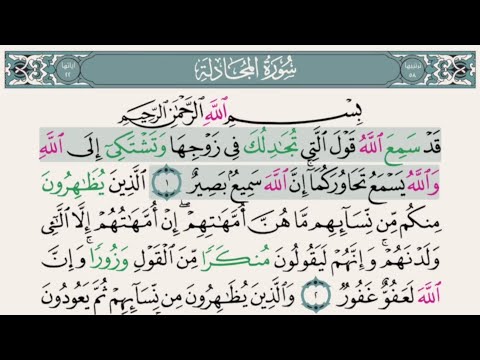 ترتيبها ٥٨
سُورَةُ المُجَادلة
آياتها ٢٢
بِسۡمِ ٱللَّهِ ٱلرَّحۡمَٰنِ ٱلرَّحِيمِ
قَدۡ سَمِعَ ٱللَّهُ قَوۡلَ ٱلَّتِي تُجَٰدِلُكَ فِي زَوۡجِهَا وَتَشۡتَكِيٓ إِلَى ٱللَّهِ
وَٱللَّهُ يَسۡمَعُ تَحَاوُرَكُمَآۚ إِنَّ ٱللَّهَ سَمِيعُۢ بَصِيرٌ ١ ٱلَّذِينَ يُظَٰهِرُونَ
مِنكُم مِّن نِّسَآئِهِم مَّا هُنَّ أُمَّهَٰتِهِمۡۖ إِنۡ أُمَّهَٰتُهُمۡ إِلَّا ٱلَّٰٓـِٔي
وَلَدۡنَهُمۡۚ وَإِنَّهُمۡ لَيَقُولُونَ مُنكَرٗا مِّنَ ٱلۡقَوۡلِ وَزُورٗاۚ وَإِنَّ
ٱللَّهَ لَعَفُوٌّ غَفُورٞ ٢ وَٱلَّذِينَ يُظَٰهِرُونَ مِن نِّسَآئِهِمۡ ثُمَّ يَعُودُونَ